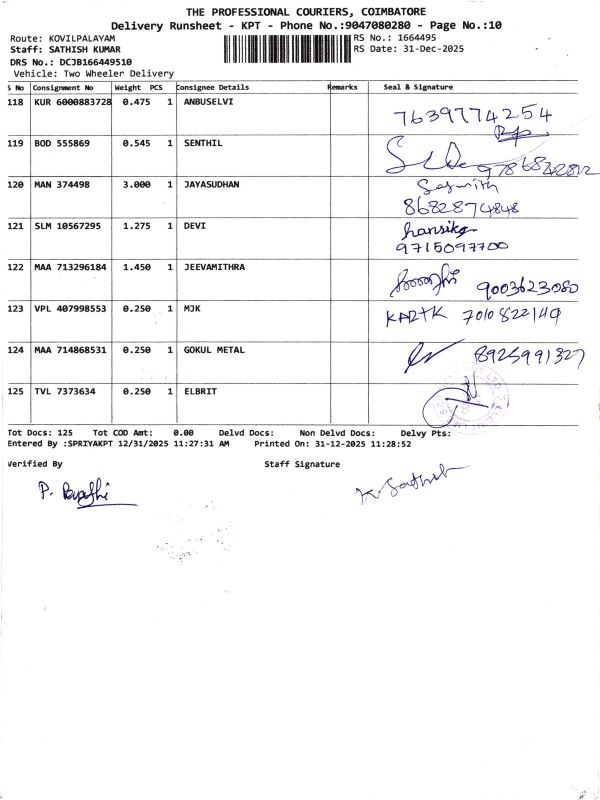 THE PROFESSIONAL COURIERS, COIMBATORE
Delivery Runsheet - KPT - Phone No.:9047080280 - Page No.:10
Route: KOVILPALAYAM
RS No.: 1664495
Staff: SATHISH KUMAR
RS Date: 31-Dec-2025
DRS No.: DCJB166449510
Vehicle: Two Wheeler Delivery
S No Consignment No Weight PCS Consignee Details Remarks Seal & Signature
118 KUR 6000883728 0.475 1 ANBUSELVI
7639774254
119 BOD 555869 0.545 1 SENTHIL
120 MAN 374498 3.000 1 JAYASUDHAN
8682874848
121 SLM 10567295 1.275 1 DEVI
hansika
9715097700
122 MAA 713296184 1.450 1 JEEVAMITHRA
9003623080
123 VPL 407998553 0.250 1 MJK
7010822149
124 MAA 714868531 0.250 1 GOKUL METAL
8925991327
125 TVL 7373634 0.250 1 ELBRIT
Tot Docs: 125 Tot COD Amt: 0.00 Delvd Docs: Non Delvd Docs: Delvy Pts:
Entered By :SPRIYAKPT 12/31/2025 11:27:31 AM Printed On: 31-12-2025 11:28:52
Verified By Staff Signature
K Sathish